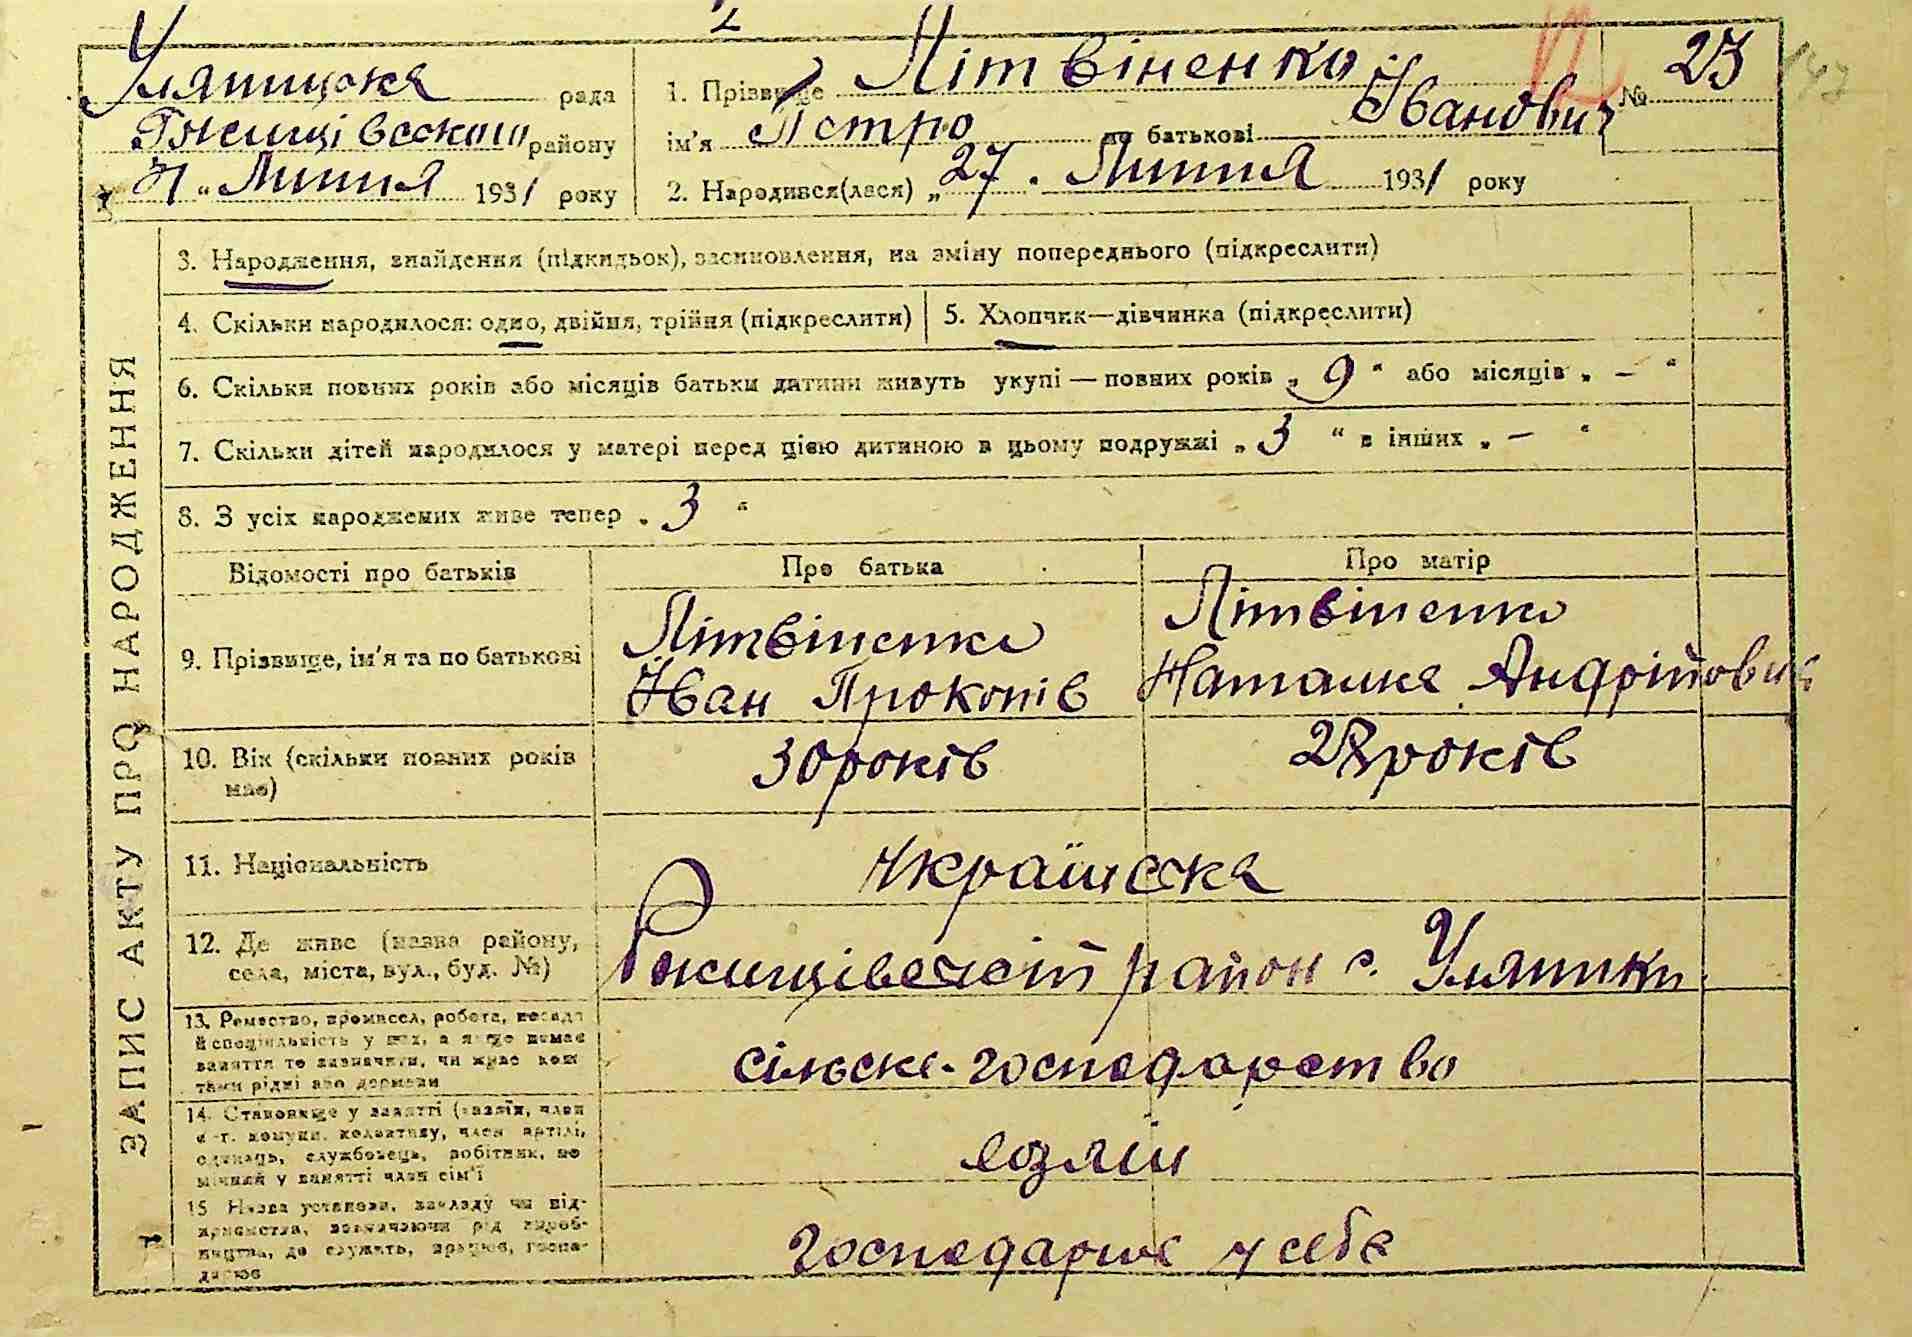 Уляницька рада
Ржищівського району
31 " Липня 1931 року
1. Прізвище Літвіненко
№ 23
147
ім'я Петро по батькові Іванович
2. Народився(лася) „ 27 " Липня 1931 року
ЗАПИС АКТУ ПРО НАРОДЖЕННЯ
3. Народження, знайдення (підкидьок), засиновлення, на зміну попереднього (підкреслити)
4. Скільки народилося: одно, двійня, трійня (підкреслити)
5. Хлопчик—дівчинка (підкреслити)
6. Скільки повних років або місяців батьки дитини живуть укупі — повних років „ 9 " або місяців „ - "
7. Скільки дітей народилося у матері перед цією дитиною в цьому подружжі „ 3 " в інших „ - "
8. З усіх народжених живе тепер „ 3 "
Відомості про батьків
Про батька
Про матір
9. Прізвище, ім'я та по батькові
Літвіненко
Іван Прокопів
Літвіненко
Наталка Андрійовна
10. Вік (скільки повних років має)
30 років
28 років
11. Національність
Українська
12. Де живе (назва району,
села, міста, вул., буд. №)
Ржищівський район с. Уляники
13. Ремество, промисел, робота, посада
й спеціальність у них, а якщо немає
заняття то зазначити, чи живе кош
тами рідні або держави
сільске-господарство
14. Становище у занятті (хазяїн, член
с.-г. комуни, колективу, член артілі,
одинець, службовець, робітник, по
мічний у занятті член сім'ї
хозяїн
15. Назва установи, закладу чи під-
приємства, зазначаючи рід вироб-
ництва, де служить, працює, госпо-
дарює
господарює у себе